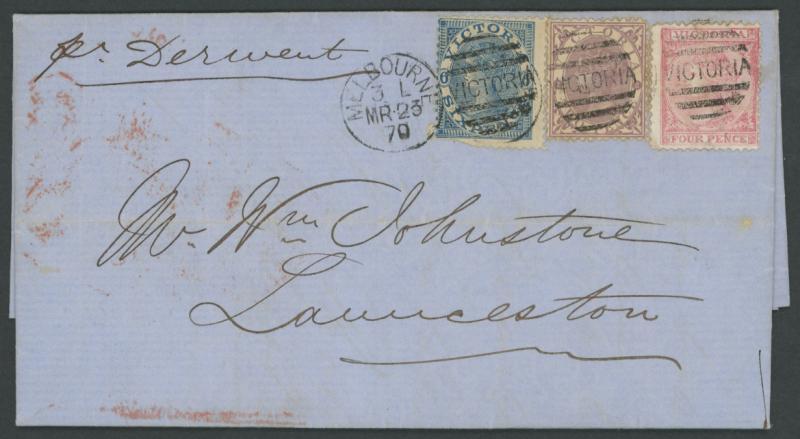 pr Derwent
MELBOURNE
3 L
MR·23
70
VICTORIA
VICTORIA
VICTORIA
VICTORIA
FOUR PENCE
Mr. Wm Johnstone
Launceston